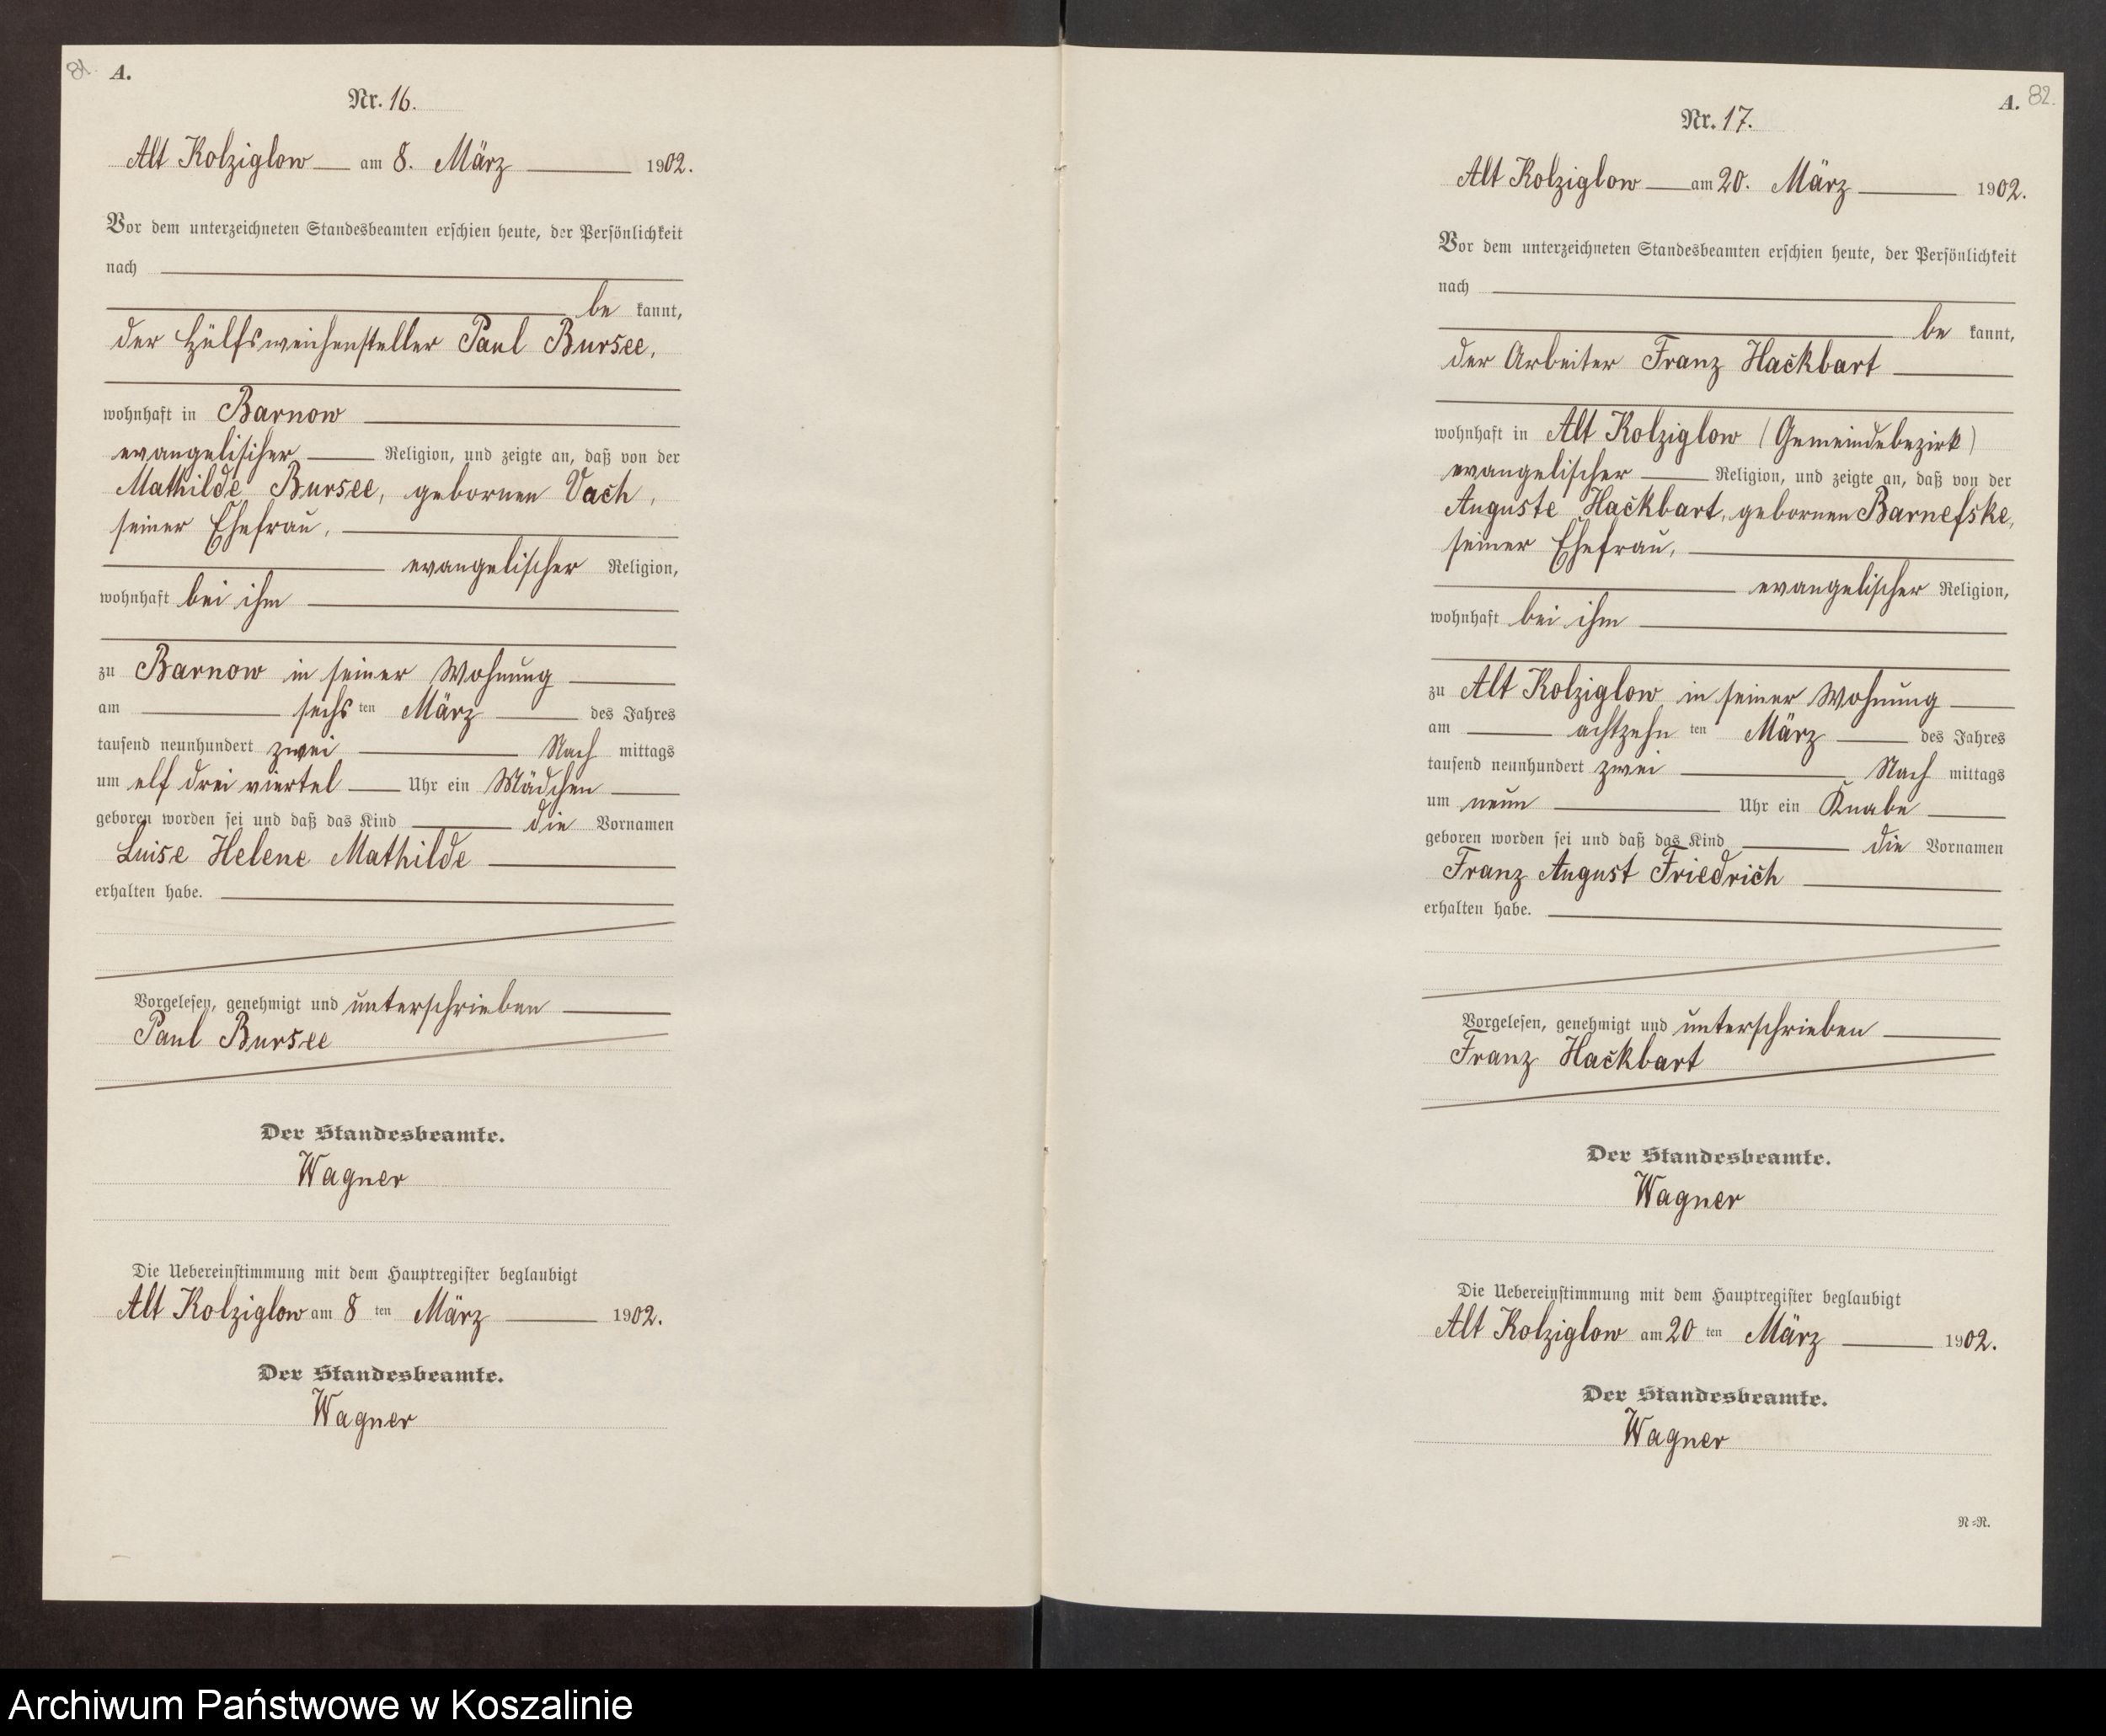 81. A.
Nr. 16.
Alt Kolziglow am 8. März 1902.
Vor dem unterzeichneten Standesbeamten erschien heute, der Persönlichkeit
nach
be kannt,
der Hülfsweichensteller Paul Bursee,
wohnhaft in Barnow
evangelischer Religion, und zeigte an, daß von der
Mathilde Bursee, gebornen Vach,
seiner Ehefrau,
evangelischer Religion,
wohnhaft bei ihm
zu Barnow in seiner Wohnung
am sechs ten März des Jahres
tausend neunhundert zwei Nach mittags
um elf drei viertel Uhr ein Mädchen
geboren worden sei und daß das Kind die Vornamen
Luise Helene Mathilde
erhalten habe.
Vorgelesen, genehmigt und unterschrieben
Paul Bursee
Der Standesbeamte.
Wagner
Die Uebereinstimmung mit dem Hauptregister beglaubigt
Alt Kolziglow am 8 ten März 1902.
Der Standesbeamte.
Wagner
A. 82.
Nr. 17.
Alt Kolziglow am 20. März 1902.
Vor dem unterzeichneten Standesbeamten erschien heute, der Persönlichkeit
nach
be kannt,
der Arbeiter Franz Hackbart
wohnhaft in Alt Kolziglow (Gemeindebezirk)
evangelischer Religion, und zeigte an, daß von der
Auguste Hackbart, gebornen Barnefske,
seiner Ehefrau,
evangelischer Religion,
wohnhaft bei ihm
zu Alt Kolziglow in seiner Wohnung
am achtzehn ten März des Jahres
tausend neunhundert zwei Nach mittags
um neun Uhr ein Knabe
geboren worden sei und daß das Kind die Vornamen
Franz August Friedrich
erhalten habe.
Vorgelesen, genehmigt und unterschrieben
Franz Hackbart
Der Standesbeamte.
Wagner
Die Uebereinstimmung mit dem Hauptregister beglaubigt
Alt Kolziglow am 20 ten März 1902.
Der Standesbeamte.
Wagner
N=R.
Archiwum Państwowe w Koszalinie